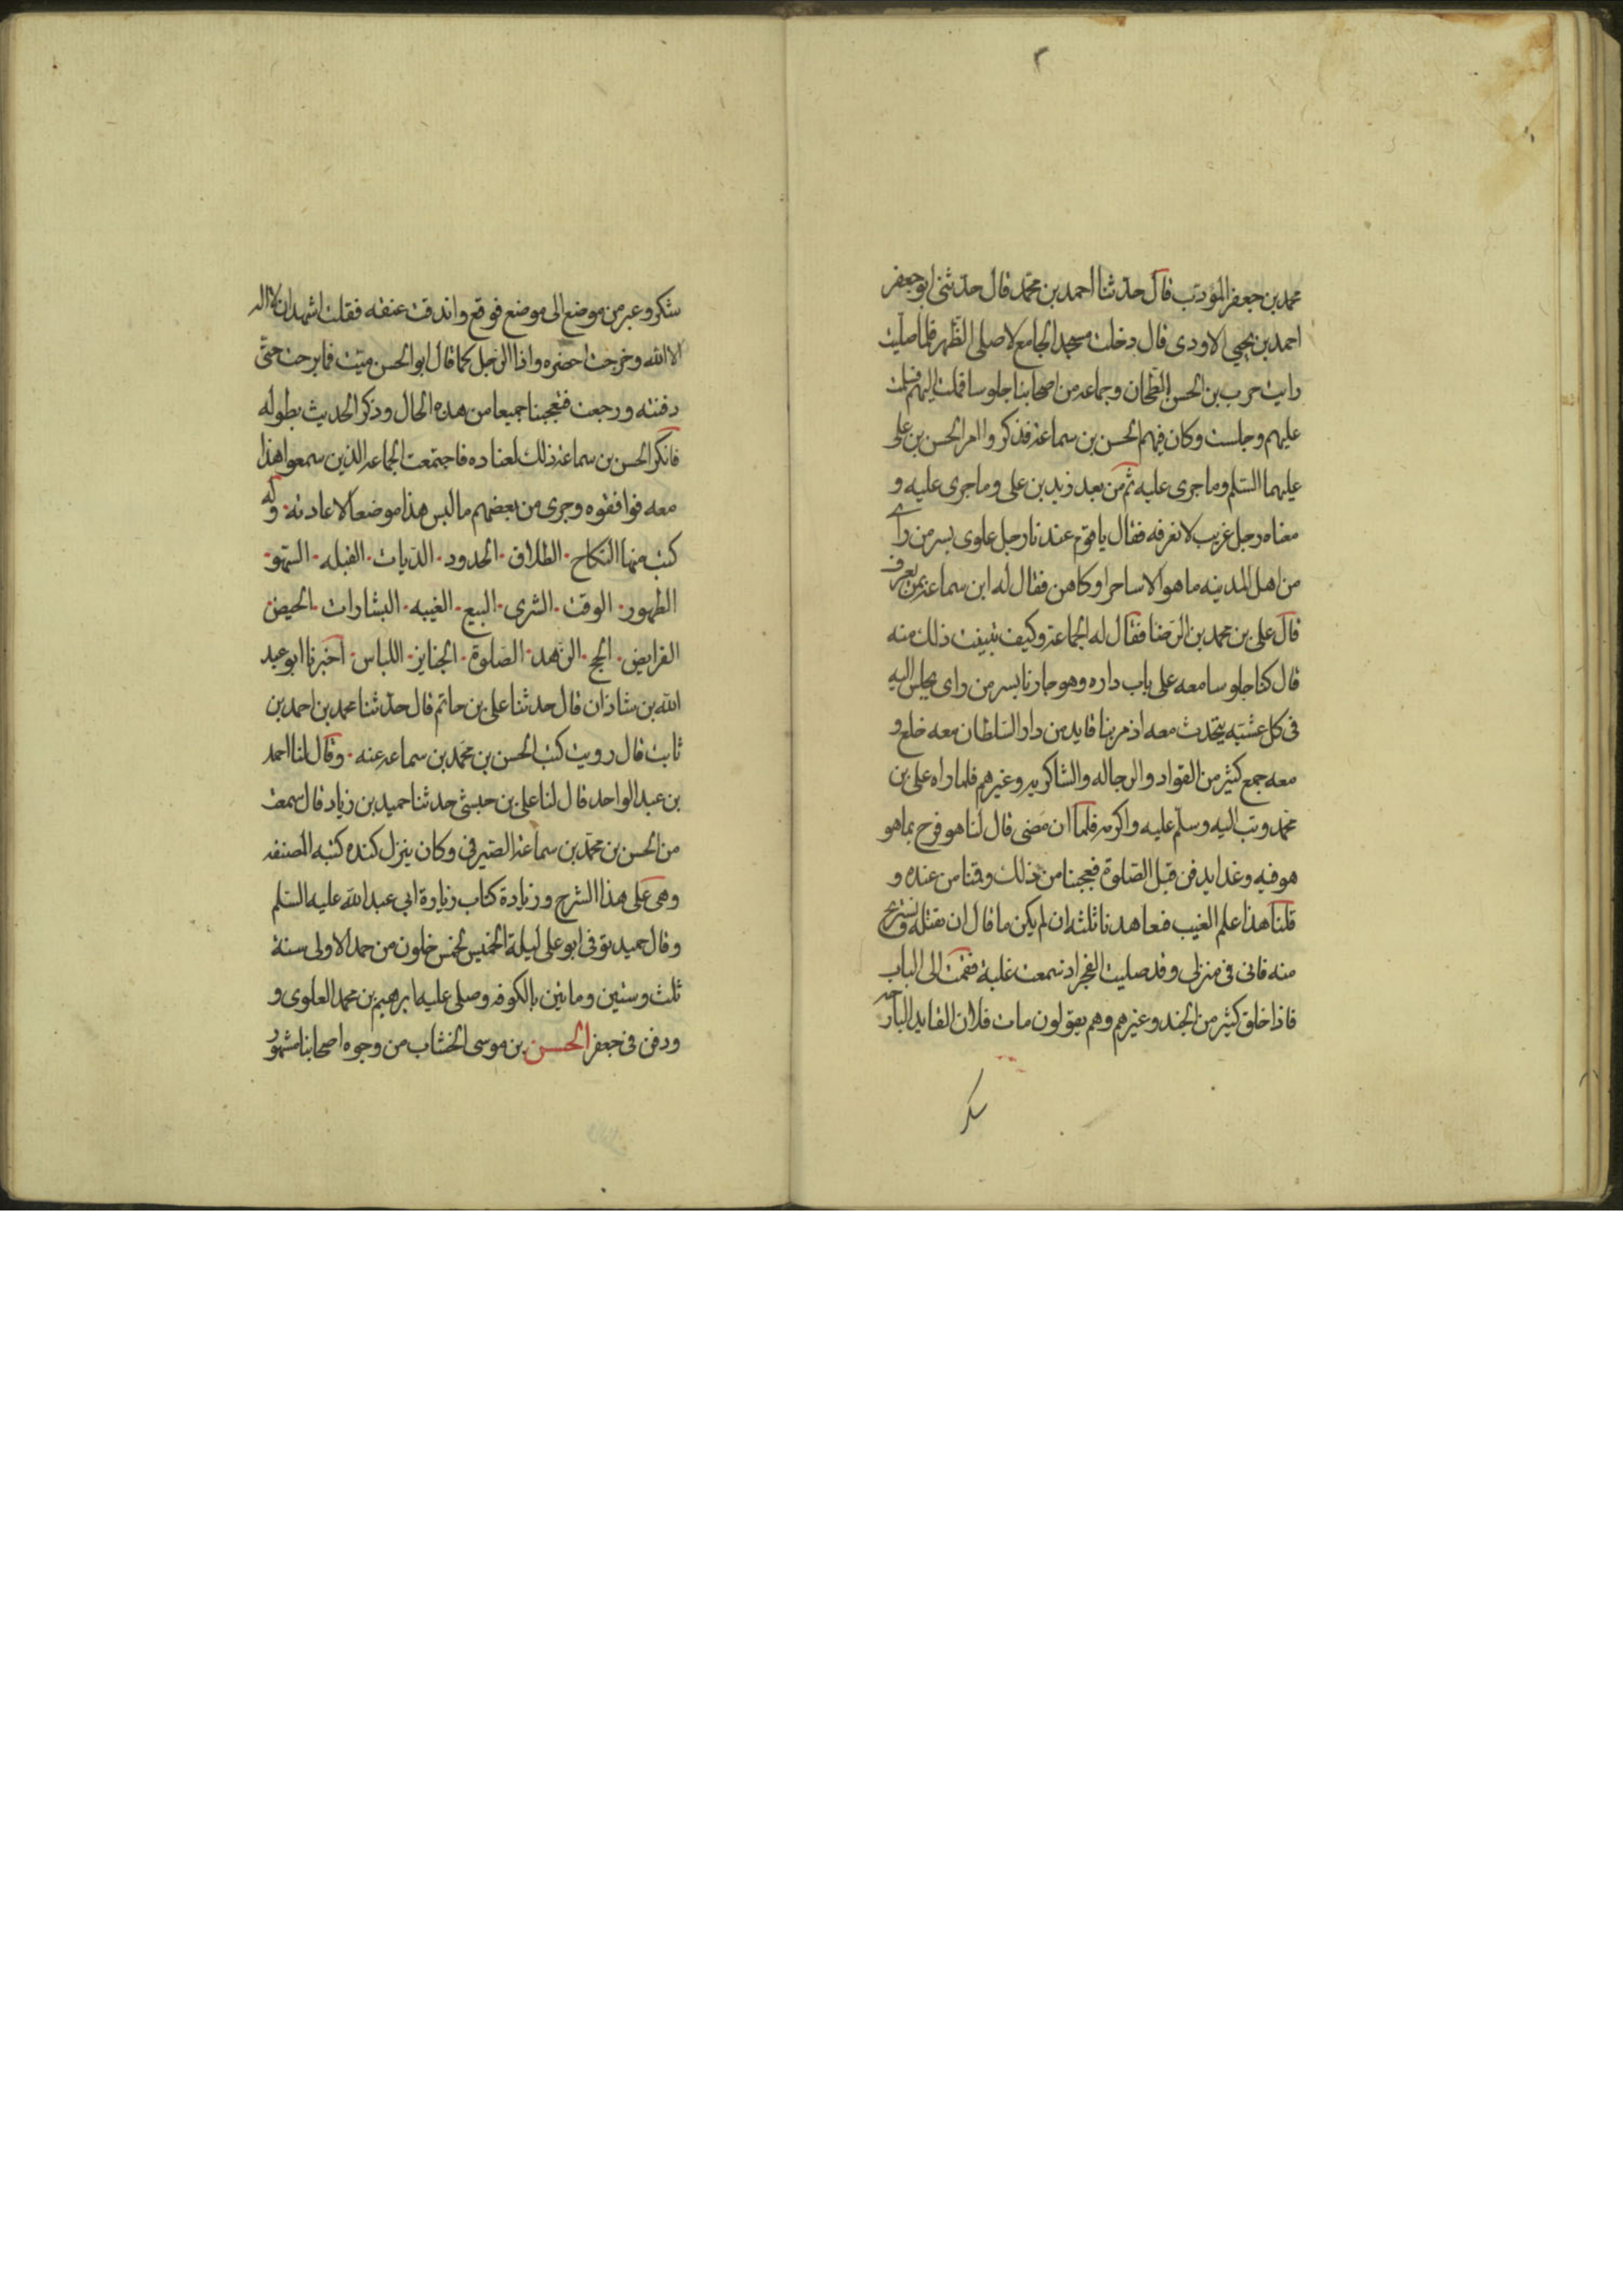 ٢
محمد بن جعفر المؤدب قال حدثنا احمد بن محمد قال حدثنى ابو جعفر
احمد بن يحيى الاودى قال دخلت مسجد الجامع لاصلى الظهر فلما صليت
رايت حرب بن الحسن الطحان وجماعه من اصحابنا جلوسا فملت اليهم فسلمت
عليهم وجلست وكان فيهم الحسن بن سماعة فذكروا امر الحسن بن على
عليهما السلم وما جرى عليه ثم من بعد زيد بن على وما جرى عليه و
معنا رجل غريب لا نعرفه فقال يا قوم عندنا رجل علوى بسر من راى
من اهل المدينه ما هو الا ساحر او كاهن فقال له ابن سماعة بمن يعرف
قال على بن محمد بن الرضا فقال له الجماعة وكيف تبينت ذلك منه
قال كنا جلوسا معه على باب داره وهو جارنا بسر من راى يجلس اليه
فى كل عشيه يتحدث معه اذ مر بنا قايد من دار السلطان معه خلع و
معه جمع كثير من القواد والرجاله والشاكريه وغيرهم فلما راه على بن
محمد وثب اليه وسلم عليه واكرمه فلما ان مضى قال لنا هو فرح بما هو
هو فيه وغدا يدفن قبل الصلوة فعجبنا من ذلك وقمنا من عنده و
قلنا هذا علم الغيب فعاهدنا ثلثه ان لم يكن ما قال ان نقتله ونستريح
منه فانى فى منزلى وقد صليت الفجر اذ سمعت غلبة فقمت الى الباب
فاذا خلق كثير من الجند وغيرهم وهم يقولون مات فلان القايد البارحه
سكر
سكر وعبر من موضع الى موضع فوقع واندقت عنقه فقلت اشهد ان لا اله
الا الله وخرجت احضره واذا الرجل كما قال ابو الحسن ميت فما برحت حتى
دفنته ورجعت فتعجبنا جميعا من هذه الحال وذكر الحديث بطوله
فانكر الحسن بن سماعة ذلك لعناده فاجتمعت الجماعه الذين سمعوا هذا
معه فوافقوه وجرى من بعضهم ما ليس هذا موضعا لاعادته · وله
كتب منها النكاح · الطلاق · الحدود · الديات · القبله · السهو ·
الطهور · الوقت · الشرى · البيع · الغيبه · البشارات · الحيض ·
الفرايض · الحج · الزهد · الصلوة · الجنايز · اللباس · اخبرنا ابو عبد
الله بن شاذان قال حدثنا على بن حاتم قال حدثنا محمد بن احمد بن
ثابت قال رويت كتب الحسن بن محمد بن سماعه عنه · وقال لنا احمد
بن عبد الواحد قال لنا على بن حبشى حدثنا حميد بن زياد قال سمعت
من الحسن بن محمد بن سماعة الصيرفى وكان ينزل كنده كتبه المصنفه
وهى على هذا الشرح وزيادة كتاب زيارة ابى عبد الله عليه السلم
وقال حميد توفى ابو على ليلة الخميس لخمس خلون من جمد الاولى سنة
ثلث وستين ومائتين بالكوفه وصلى عليه ابرهيم بن محمد العلوى و
ودفن فى جعفر الحسن بن موسى الخشاب من وجوه اصحابنا مشهور